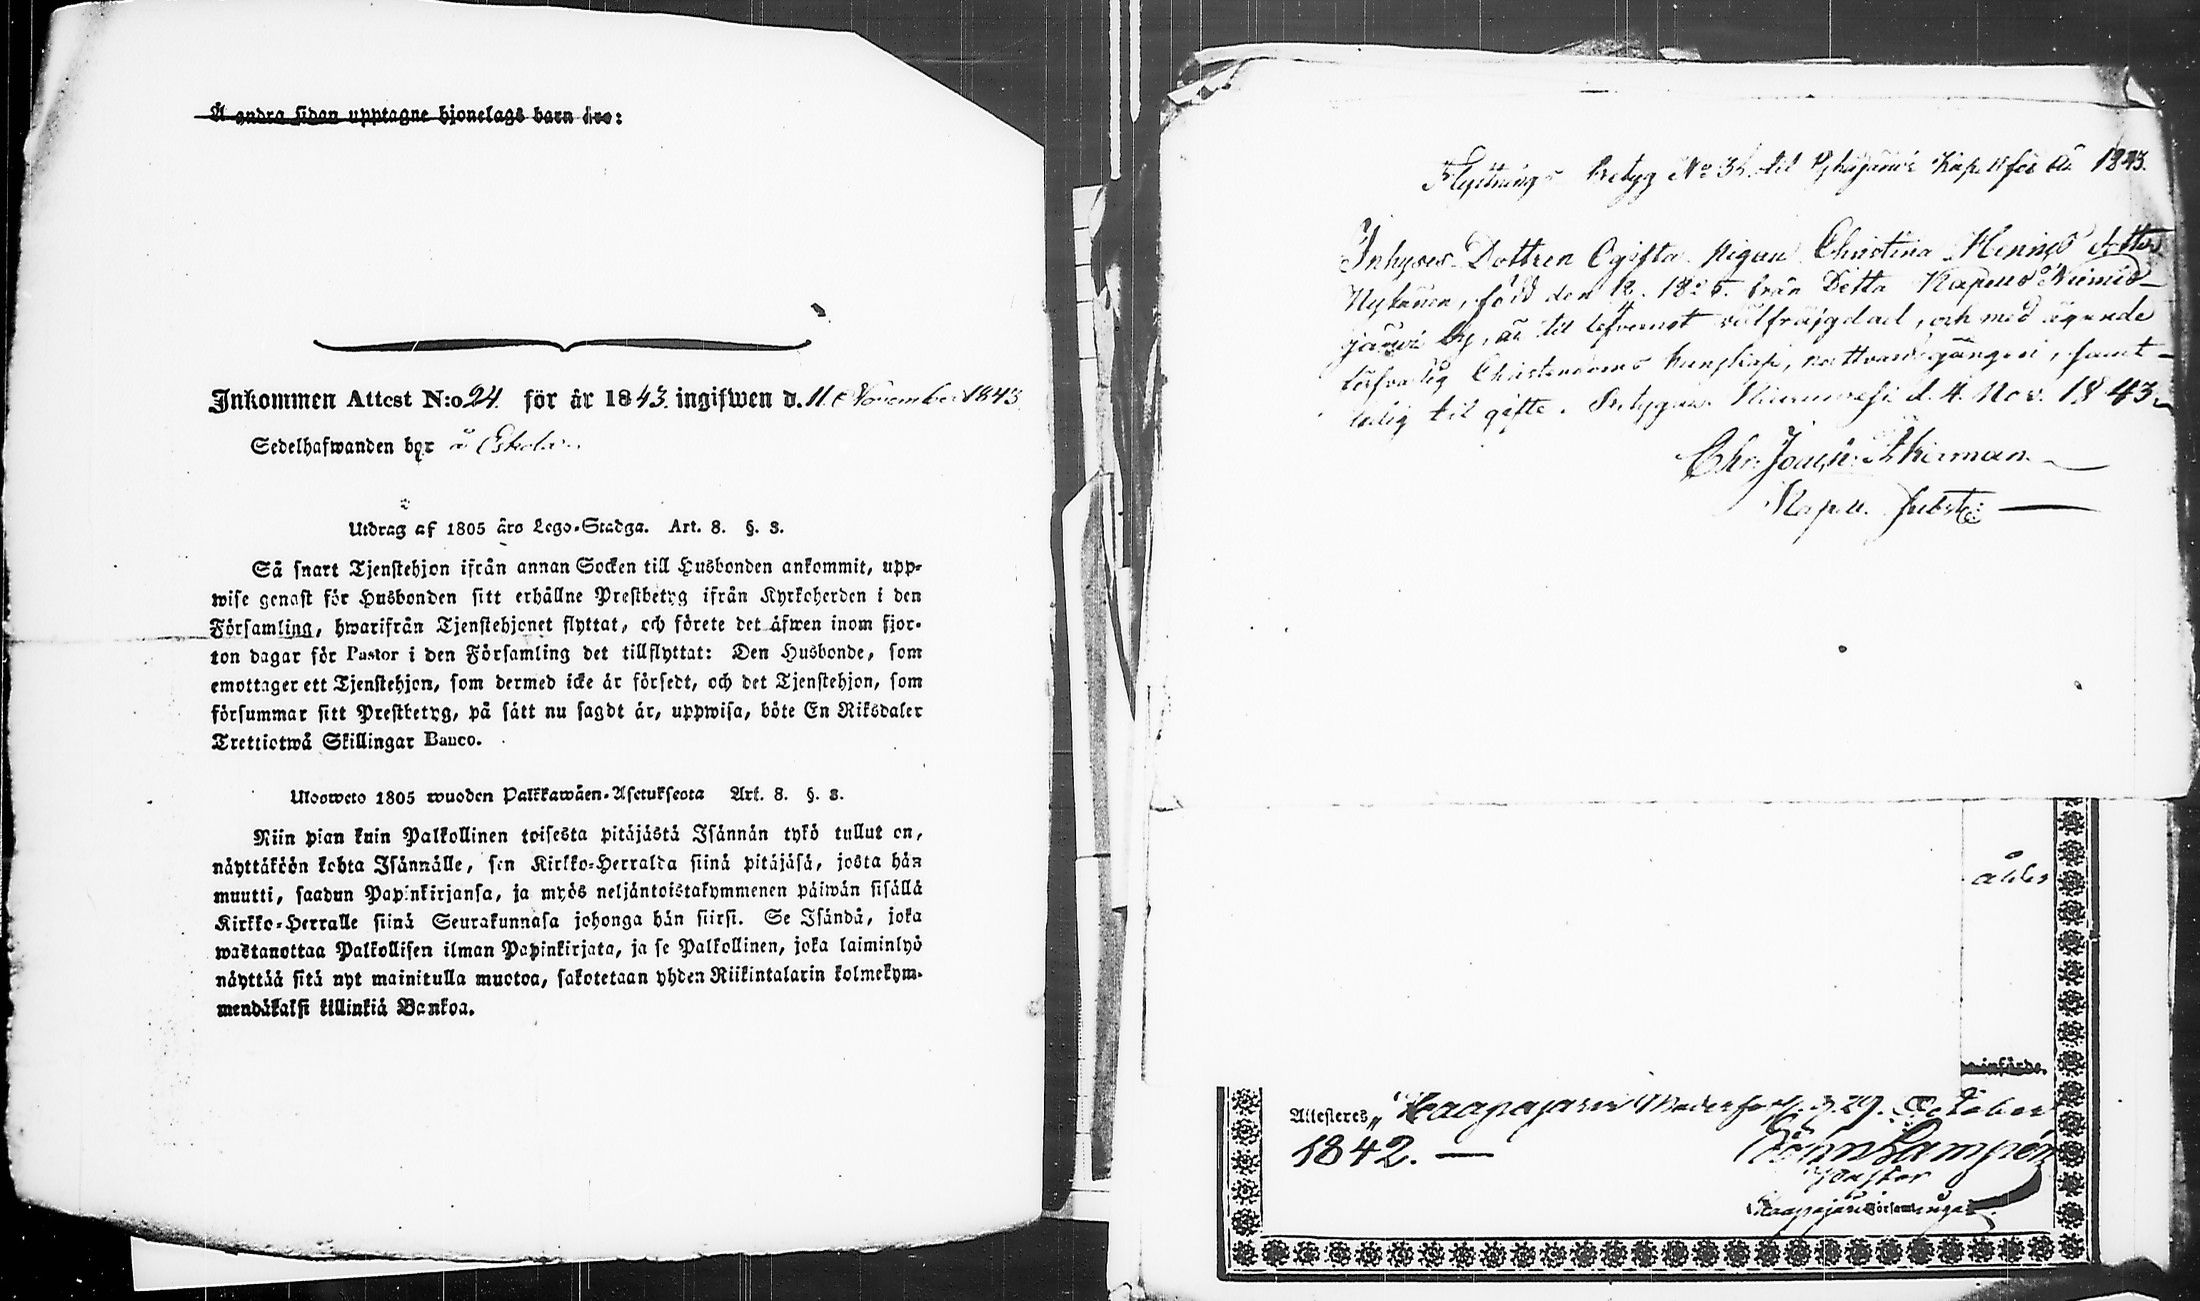 Å andra sidan upptagne hjonelags barn äro:
Inkommen Attest N:o 24. för år 1843. ingifwen d. 11. November 1843.
Sedelhafwanden bor å Eskola
Utdrag af 1805 års Lego-Stadga. Art. 8. §. 3.
Så snart Tjenstehjon ifrån annan Socken till Husbonden ankommit, upp-
wise genast för Husbonden sitt erhållne Prestbetyg ifrån Kyrkoherden i den
Församling, hwarifrån Tjenstehjonet flyttat, och förete det äfwen inom fjor-
ton dagar för Pastor i den Församling det tillflyttat: Den Husbonde, som
emottager ett Tjenstehjon, som dermed icke är försedt, och det Tjenstehjon, som
försummar sitt Prestbetyg, på sätt nu sagdt är, uppwisa, böte En Riksdaler
Trettiotwå Skillingar Banco.
Ulosweto 1805 wuoden Palkkawäen-Asetuksesta Art. 8. §. 3.
Niin pian kuin Palkollinen toisesta pitäjästä Isännän tykö tullut on,
näyttäköön kohta Isännälle, sen Kirkko-Herralda siinä pitäjäsä, josta hän
muutti, saadun Papinkirjansa, ja myös neljäntoistakymmenen päiwän sisällä
Kirkko-Herralle siinä Seurakunnasa johonga hän siirsi. Se Isändä, joka
wastanottaa Palkollisen ilman Papinkirjata, ja se Palkollinen, joka laiminlyö
näyttää sitä nyt mainitulla muotoa, sakotetaan yhden Riikintalarin kolmekym-
mendäkaksi killinkiä Bankoa.
Flyttnings Betyg No 3 til Pyhäjärvi Kapell för År 1843.
Inhyses Dottren Ogifta Pigan Christina Henrics dotter
Nykänen, född den 12. från Detta Kapells Niemis-
järvi by, är til lefvernet välfräjgdad, och med ägande
Christendoms kunskap, nattvardsgången, samt
ledig til gifte. Betygar d. 4. Nov. 1843.
Chr. Joach. Åkerman
Kapell.
ålder
införde.
Attesteres, Haapajärvi Moderförs. d. 29. October
1842. —
Lampén
Pastor
Haapajärvi Församlingar.